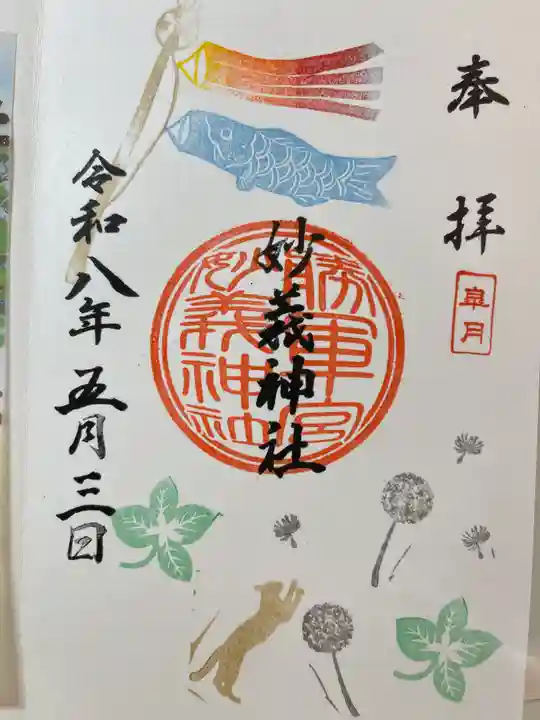 奉拝
皐月
妙義神社
勝軍宮
妙義神社
令和八年五月三日